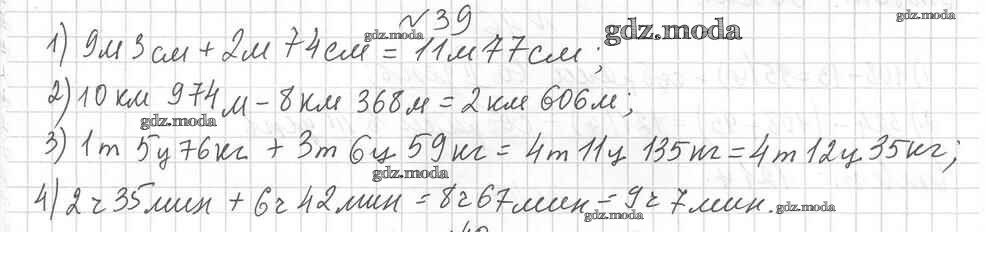 №39
gdz.moda
1) 9м 3см + 2м 74см = 11м 77см;
gdz.moda
gdz.moda
2) 10 км 974 м - 8 км 368 м = 2 км 606 м;
gdz.moda
3) 1т 5ц 76кг + 3т 6ц 59кг = 4т 11ц 135кг = 4т 12ц 35кг;
gdz.moda
4) 2ч 35мин + 6ч 42мин = 8ч 67мин = 9ч 7мин.
gdz.moda
gdz.moda